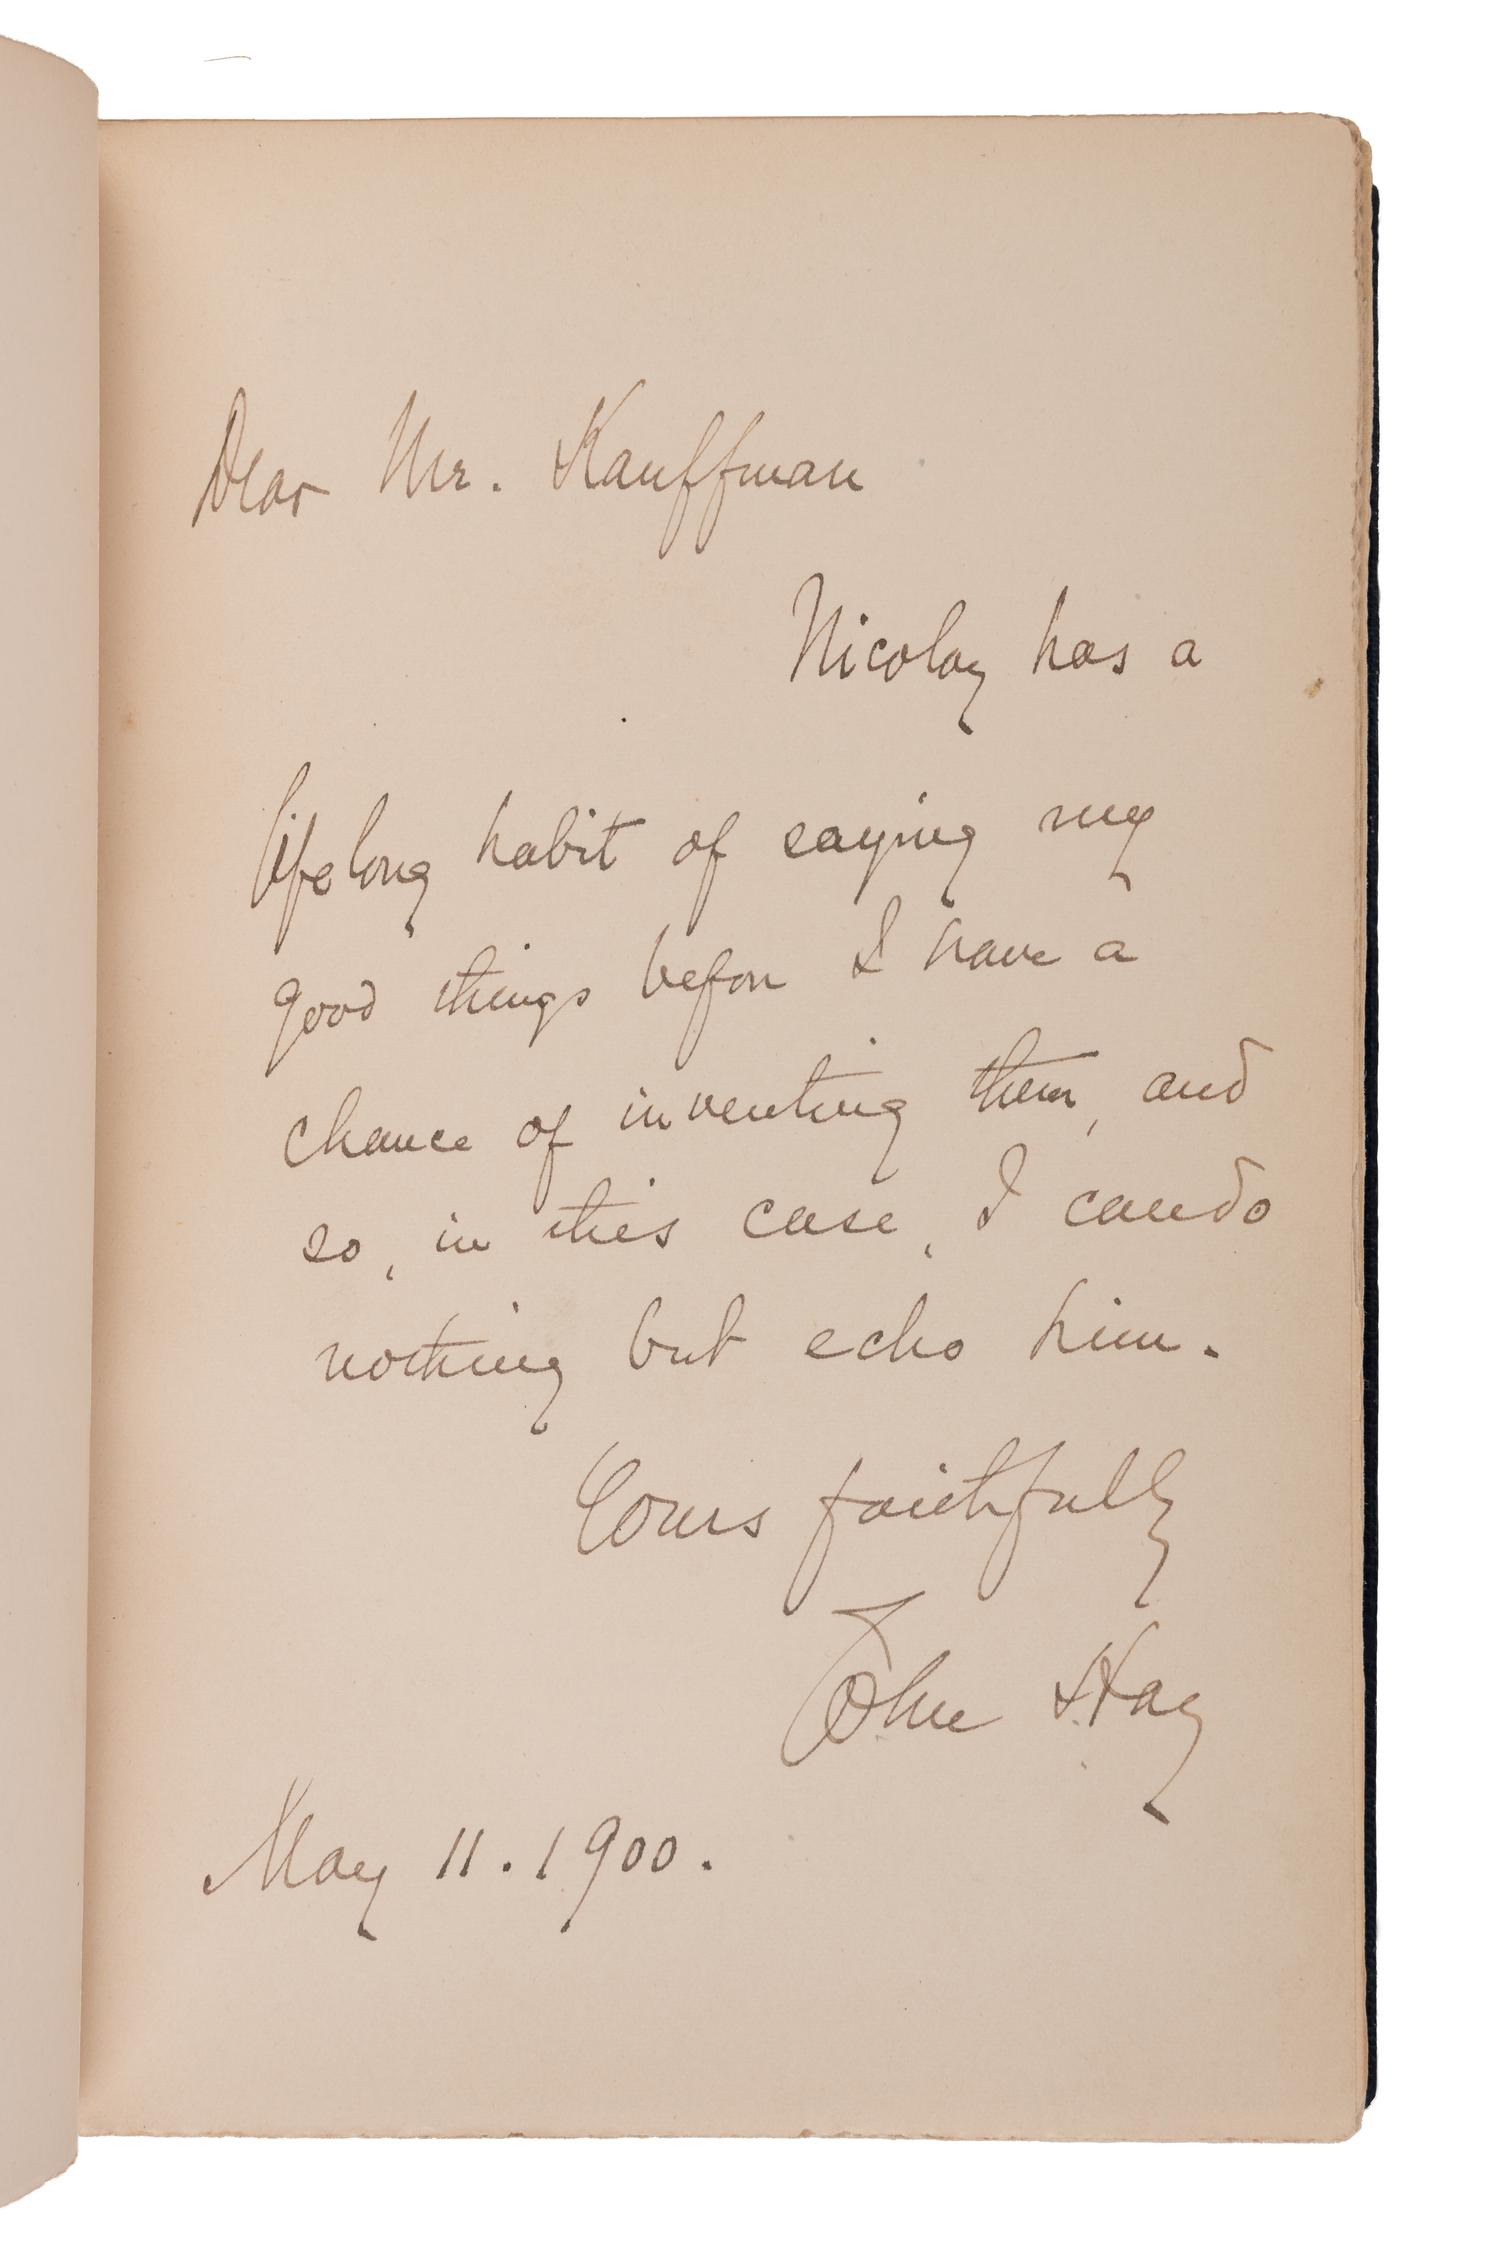 Dear Mr. Kauffman
Nicolay has a
lifelong habit of saying my
good things before I have a
chance of inventing them, and
so, in this case, I can do
nothing but echo him.
Yours faithfully
John Hay
May 11. 1900.